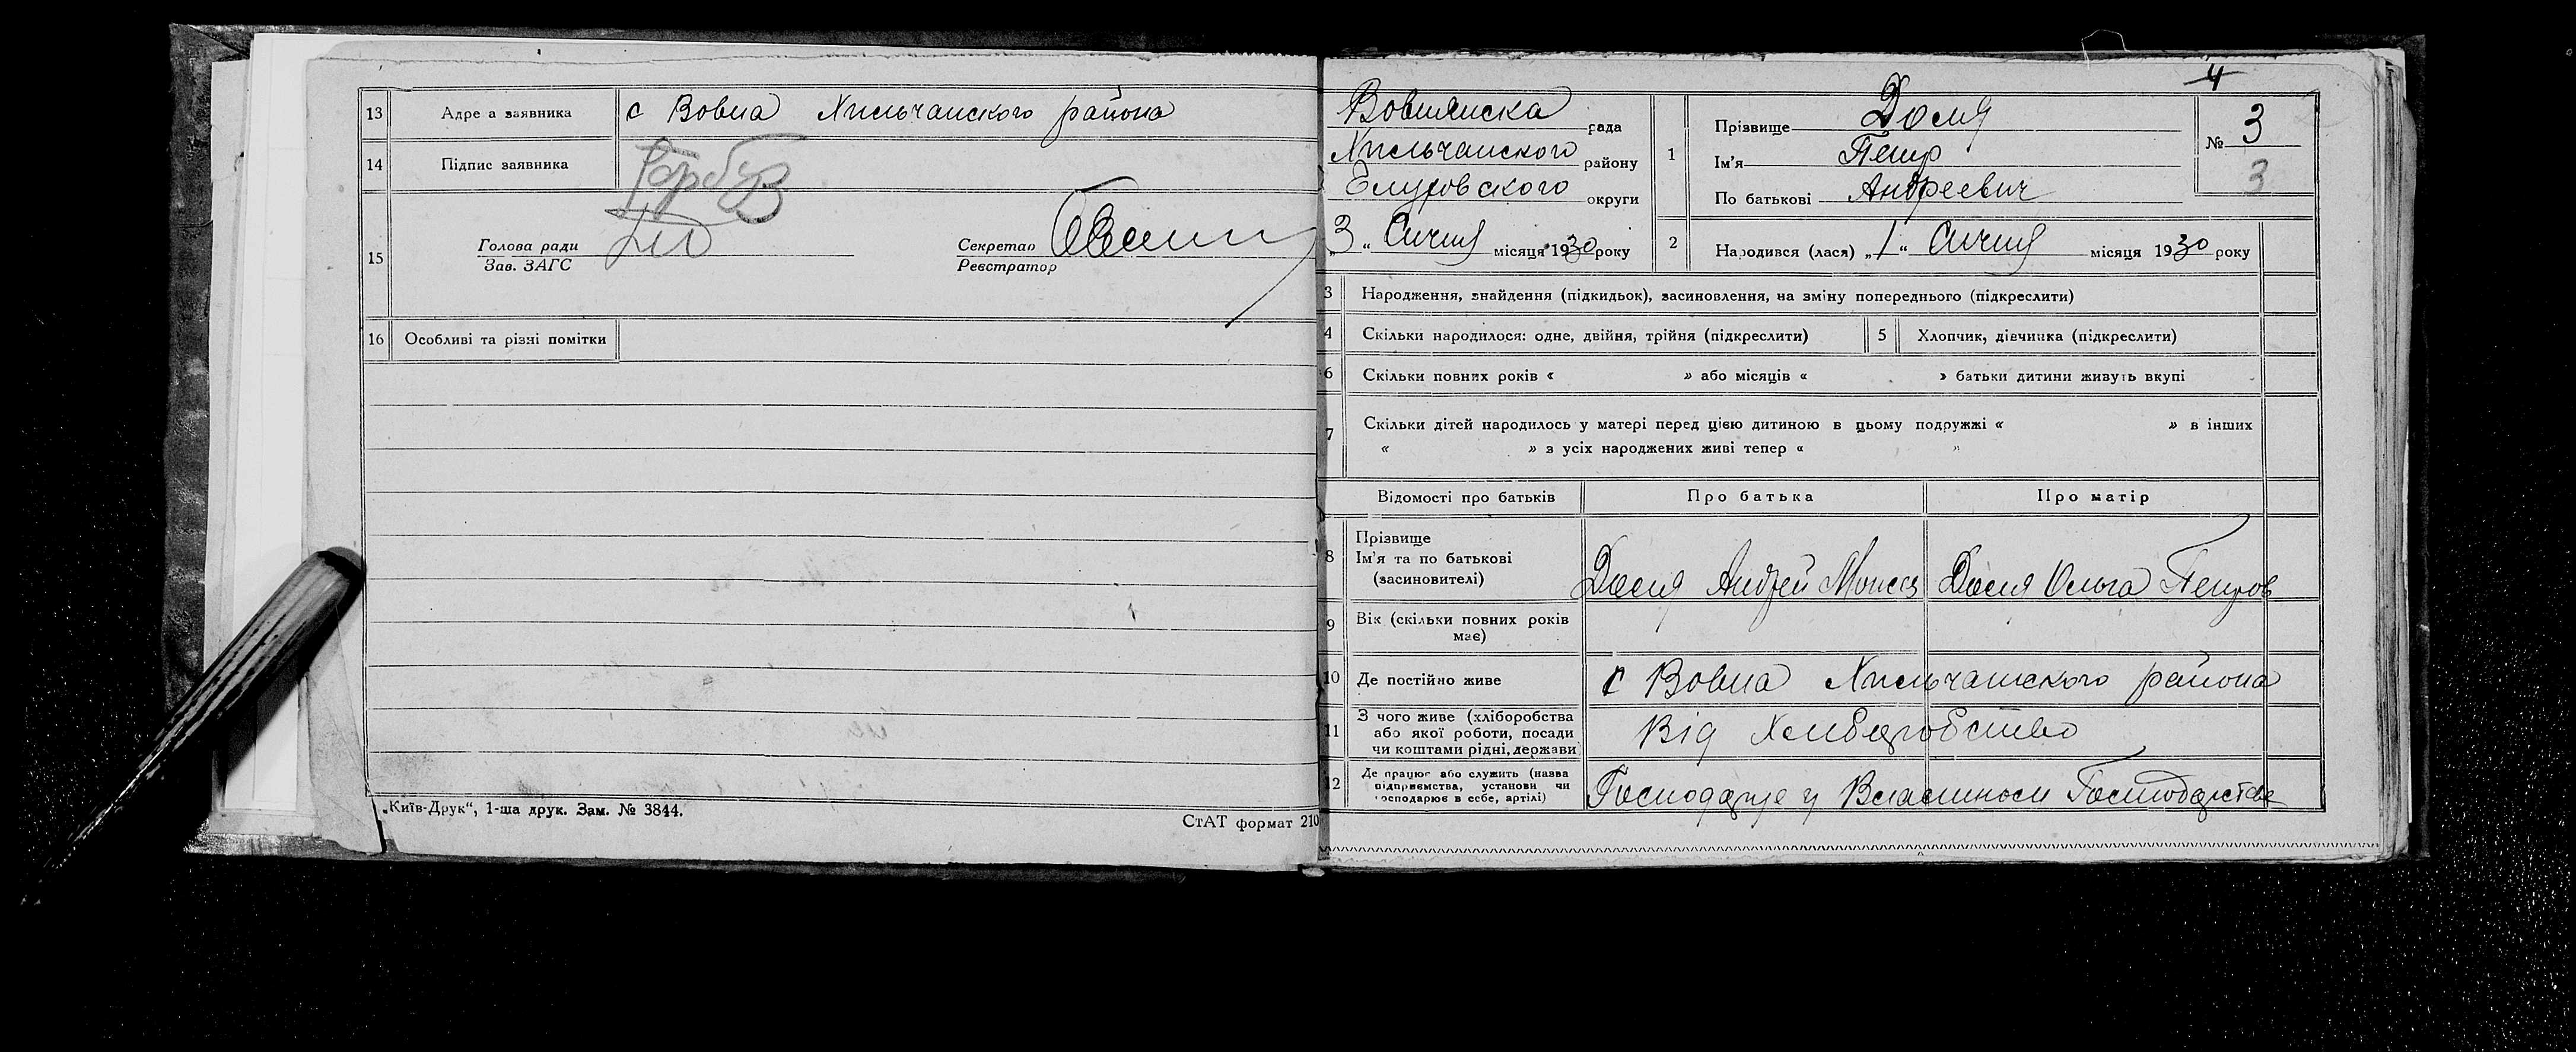 13 Адре а заявника с Вовна Хильчанского района
14 Підпис заявника
15 Голова ради Секретар
Зав. ЗАГС Реєстратор
16 Особливі та різні помітки
„Київ-Друк“, 1-ша друк. Зам. № 3844.
СтАТ формат 210
4
Вовнянска рада
Хильчанского району
округи
3 „ Січня місяця 1930 року
1 Прізвище Доля
Ім'я Петр
По батькові Андреевич
№ 3
3
2 Народився (лася) „1“ Січня місяця 1930 року
3 Народження, знайдення (підкидьок), засиновлення, на зміну попереднього (підкреслити)
4 Скільки народилося: одне, двійня, трійня (підкреслити) 5 Хлопчик, дівчинка (підкреслити)
6 Скільки повних років « » або місяців « » батьки дитини живуть вкупі
7 Скільки дітей народилось у матері перед цією дитиною в цьому подружжі « » в інших
« » з усіх народжених живі тепер « »
Відомості про батьків Про батька Про матір
8 Прізвище
Ім'я та по батькові
(засиновителі) Доля Андрей Моисее Доля Ольга Петров
9 Вік (скільки повних років
має)
10 Де постійно живе с Вовна Хильчанского района
11 З чого живе (хліборобства
або якої роботи, посади
чи коштами рідні, держави) Від Хлибаробство
12 Де працює або служить (назва
підприємства, установи чи
господарює в себе, артілі) Господарує у Власином Господарстве